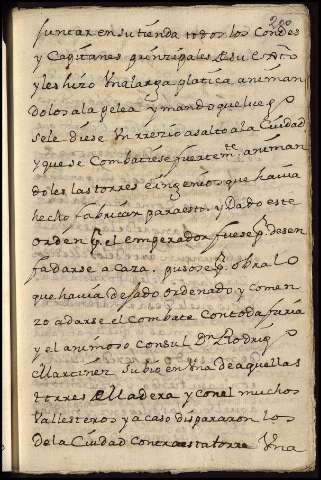 280
juntar en su tienda todos los Condes
y Capitanes prinzipales de su est.to
y les hizo Una larga platica animan
dolos a la pelea y mando que luego
se le diese Un rrezio asalto a la Ciudad
y que se Combatiese fuertem.te animan
doles las torres e ingenios que havia
hecho fabricar para esto. y Dado este
orden p.r el emperador fuese p.r desen
fadarse a Caza. pusose p.r obra lo
que havia dejado ordenado y comen
zo a darse el Combate Con toda furia
y el animoso Consul dn Rodrigo
Martinez Subio en Una de aquellas
ttorres de Madera y con el muchos
Vallesteros y a caso dispararon los
de la Ciudad Contra esta torre Una